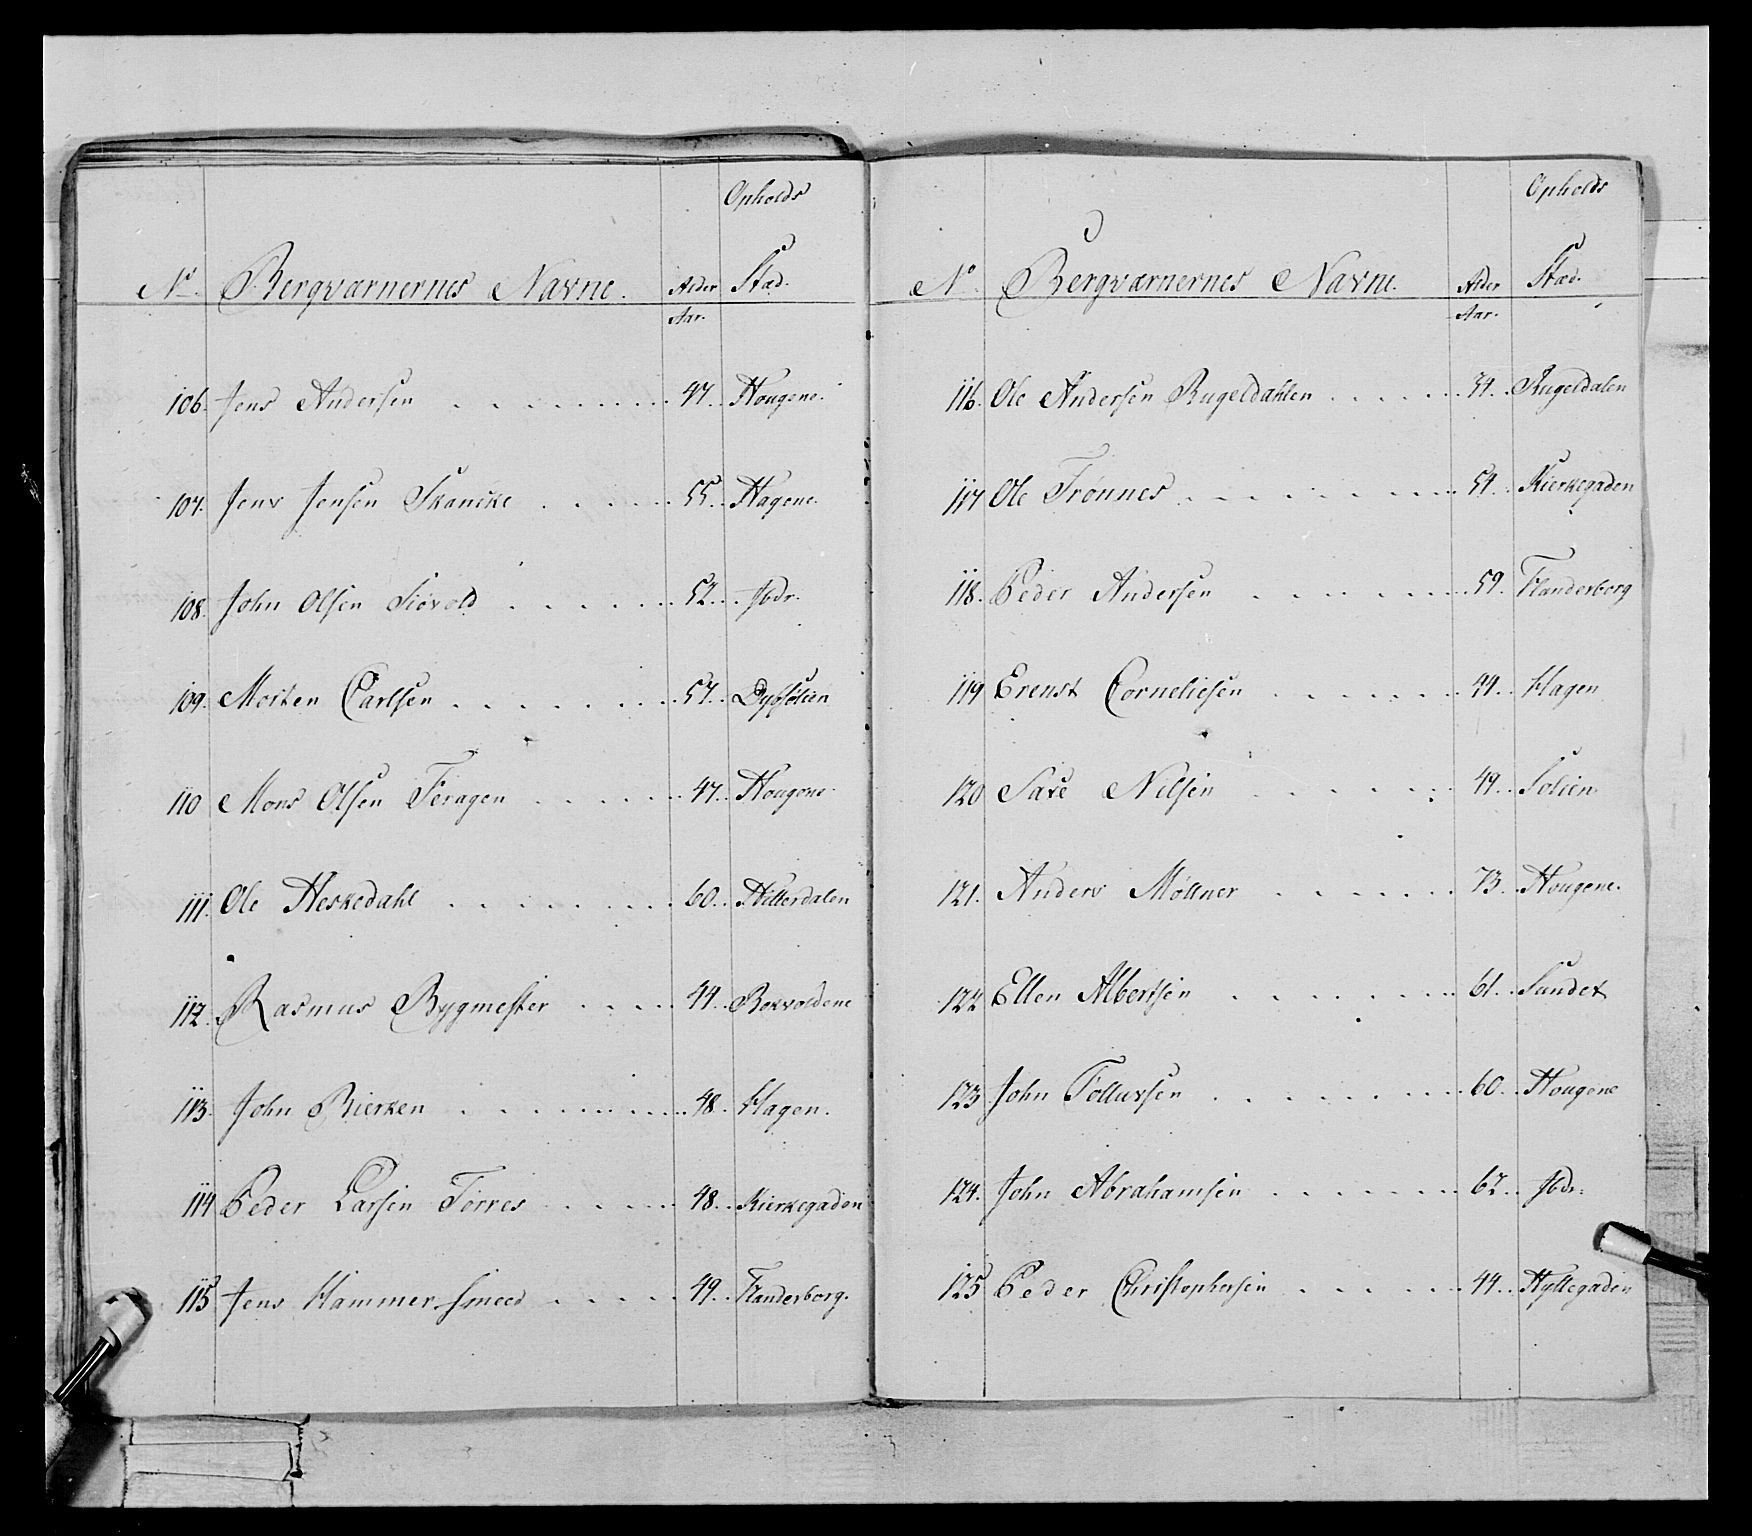 Opholds
No. Bergværnernes Navne. Alder Stad.
Aar.
106. Jens Andersen 47. Hougene.
107. Jens Jensen Skancke 55. Hagene.
108. John Olsen Siøvold 52. Ibdr.
109. Morten Carlsen 57.
110 Mons Olsen Feragen 47. Hougene.
111. Ole Heskedahl 60. Hitterdalen
112. Rasmus Bygmester 44. Borvoldene
113. John Bierken 48. Hagen.
114 Peder Larsen Torres 48. Kierkegaden
115 Jens Hammersmeed 49. Flanderborg.
Opholds
No. Bergværnernes Navne. Alder Stad.
Aar.
116. Ole Andersen Rugeldahlen 54. Rugeldalen
117 Ole Trønnes 54. Kierkegaden
118. Peder Andersen 59. Flanderborg
119 Ernst Corneliesen 44. Hagen
120 Nilsen 49. Solien
121. Anders Møllner 73. Hougene.
122 Ellen Albertsen 61. Sundet
123 John Tollevsen 60. Hougene
124. John Abrahamsen 62. Ibdr.
125 Peder Christophersen 44. Hyttegaden